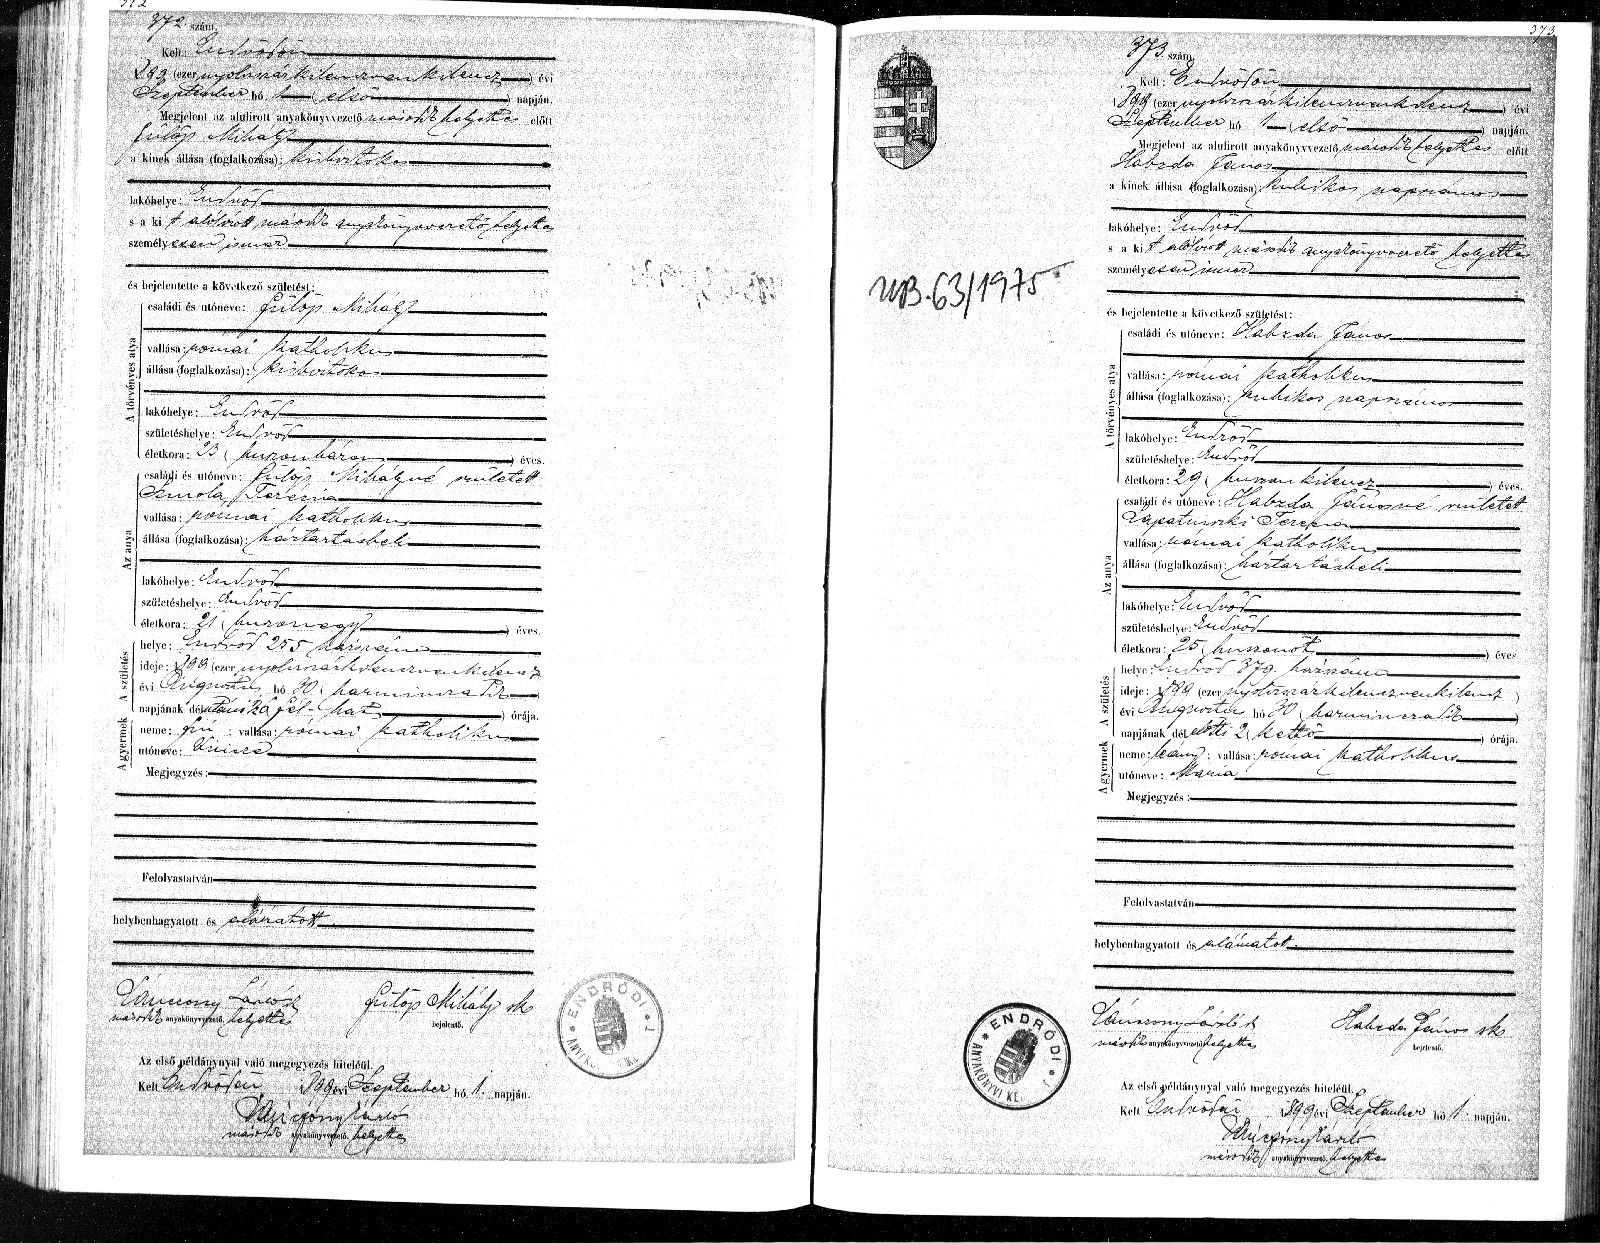 372
372 szám.
Kelt: Endrődön
1899 (ezer nyolczszázkilenczvenkilencz ) évi
Szeptember hó 1 ( első ) napján.
Megjelent az alulirott anyakönyvvezető második helyettes előtt
Fülöp Mihály
a kinek állása (foglalkozása): kisbirtokos
lakóhelye: Endrőd
s a kit alólirott második anyakönyvvezető helyettes
személyesen ismer
és bejelentette a következő születést:
A törvényes atya
családi és utóneve: Fülöp Mihály
vallása: római katholikus
állása (foglalkozása): kisbirtokos
lakóhelye: Endrőd
születéshelye: Endrőd
életkora: 23 ( huszonhárom ) éves.
Az anya
családi és utóneve: Fülöp Mihályné született
Terézia
vallása: római katholikus
állása (foglalkozása): háztartásbeli
lakóhelye: Endrőd
születéshelye: Endrőd
életkora: 21 ( huszonegy ) éves.
A születés
helye: Endrőd 255 házszám
ideje: 1899 (ezer nyolczszázkilenczvenkilencz
évi Augusztus hó 30 ( harminczadik )
napjának délutáni fél hat ) órája.
A gyermek
neme: fiú ; vallása: római katholikus
utóneve: Vincze
Megjegyzés:
Felolvastatván
helybenhagyatott és aláiratott.
második anyakönyvvezető. helyettes
Fülöp Mihály sk
bejelentő.
ENDRŐDI
Az első példánynyal való megegyezés hiteléül.
Kelt Endrődön 1899 évi Szeptember hó 1. napján.
második anyakönyvvezető. helyettes
373
373 szám.
Kelt: Endrődön
1899 (ezer nyolczszázkilenczvenkilencz ) évi
Szeptember hó 1 ( első ) napján.
Megjelent az alulirott anyakönyvvezető második helyettes előtt
Habzda János
a kinek állása (foglalkozása): kubikos napszámos
lakóhelye: Endrőd
s a kit alólirott második anyakönyvvezető helyettes
személyesen ismer
és bejelentette a következő születést:
A törvényes atya
családi és utóneve: Habzda János
vallása: római katholikus
állása (foglalkozása): kubikos napszámos
lakóhelye: Endrőd
születéshelye: Endrőd
életkora: 29 ( huszonkilencz ) éves.
Az anya
családi és utóneve: Habzda Jánosné született
Terézia
vallása: római katholikus
állása (foglalkozása): háztartásbeli
lakóhelye: Endrőd
születéshelye: Endrőd
életkora: 25 ( huszonöt ) éves
A születés
helye: Endrőd 379. házszám
ideje: 1899 (ezer nyolczszázkilenczvenkilencz )
évi Augusztus hó 30 ( harminczadik )
napjának délelőtti 2 ( kettő ) órája.
A gyermek
neme: leány ; vallása: római katholikus
utóneve: Mária
Megjegyzés:
Felolvastatván
helybenhagyatott és aláiratott.
második anyakönyvvezető helyettes
Habzda János sk
bejelentő.
Az első példánynyal való megegyezés hiteléül.
Kelt Endrődön 1899 évi Szeptember hó 1. napján.
második anyakönyvvezető. helyettes
63/1975
ENDRŐDI
ANYAKÖNYVI KE.